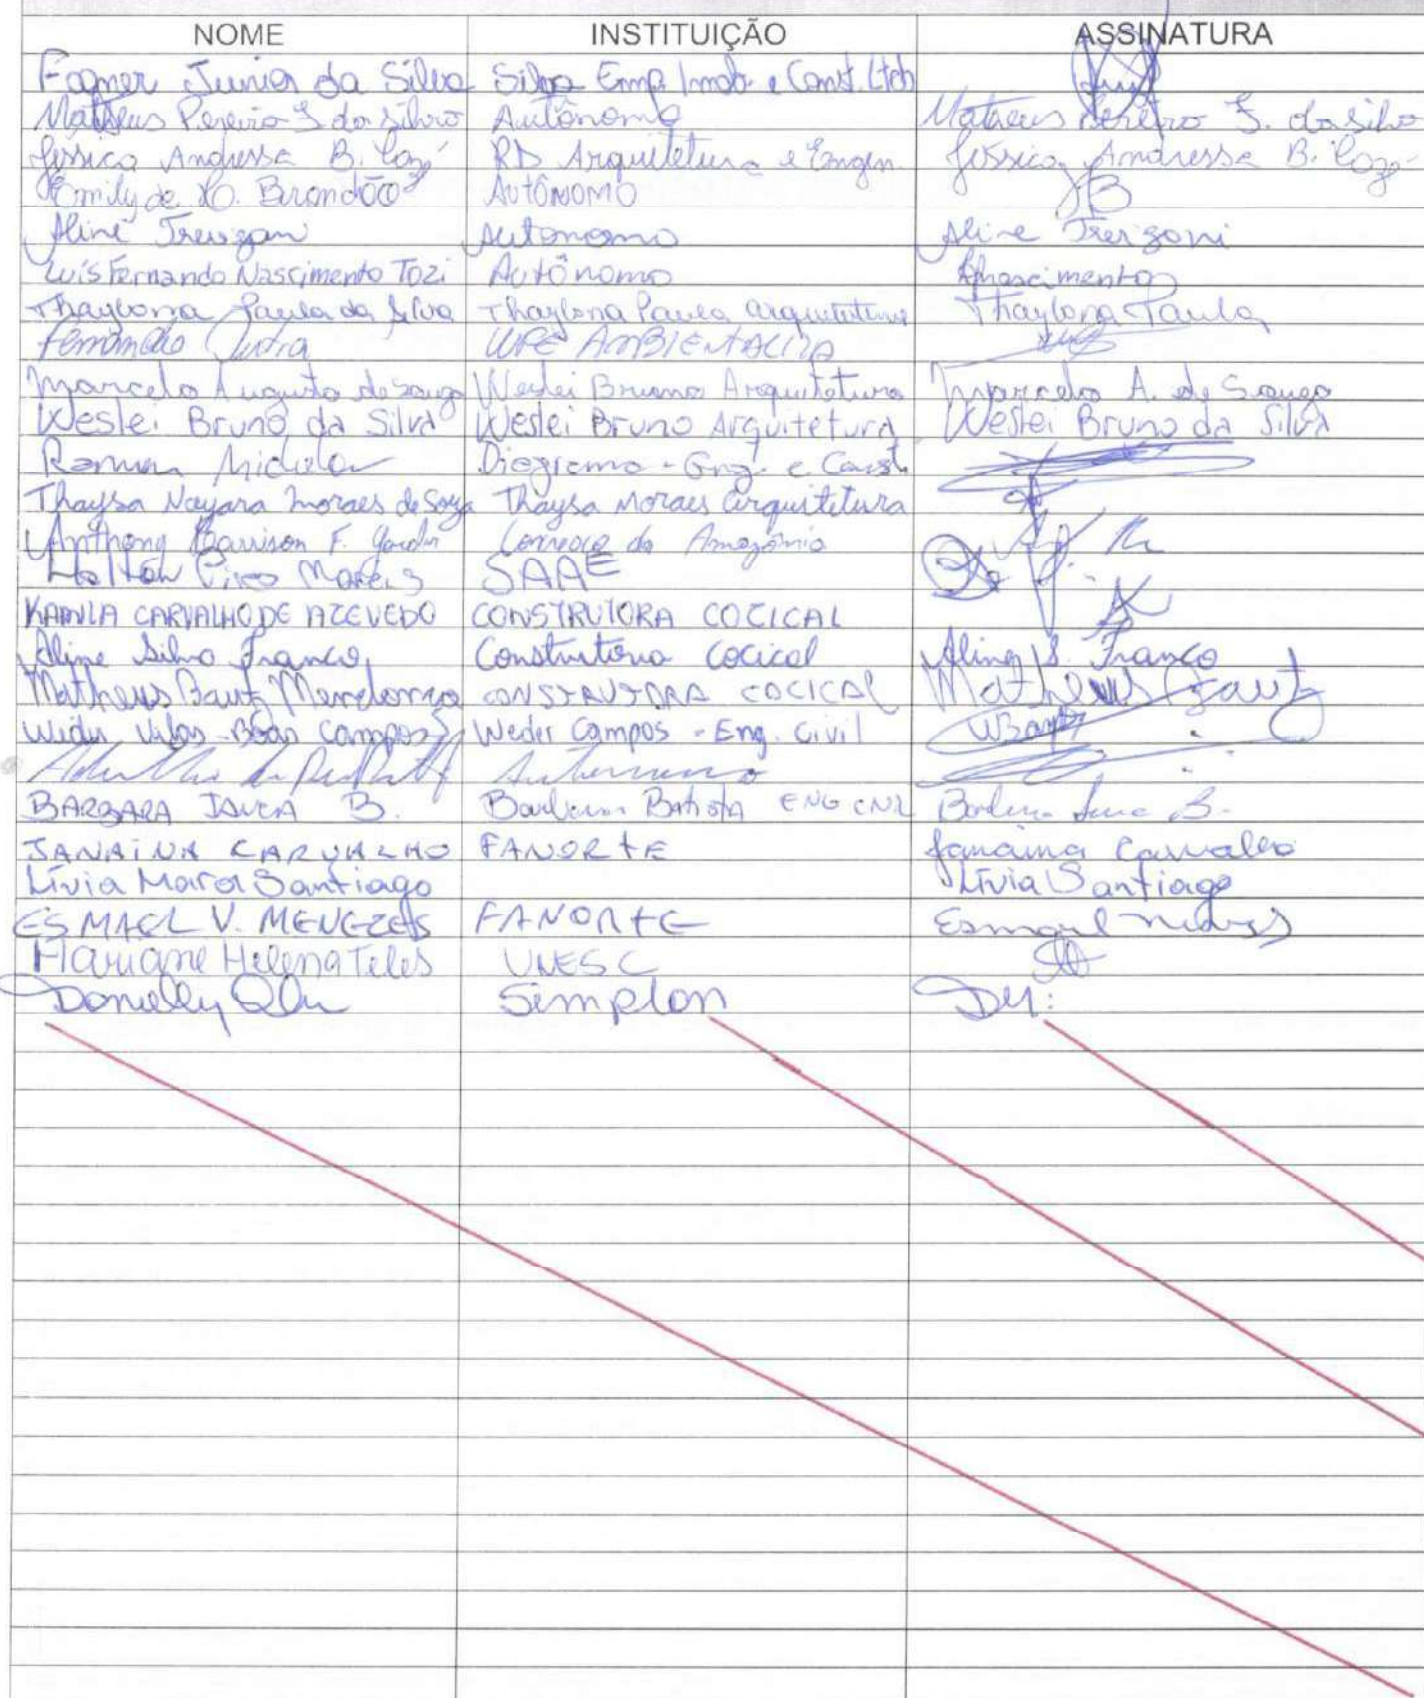 NOME INSTITUIÇÃO ASSINATURA
Fagner Junior da Silva Silva Emp. Imob. e Const. Ltda
Matheus Pereira S. da Silva Autônomo Matheus Pereira S. da Silva
Jéssica Andressa B. Autônomo RD Arquitetura e Engen. Jéssica Andressa B.
Emily de O. Brandão AUTÔNOMO
Aline Trevizani Autonomo Aline Trevizani
Luís Fernando Nascimento Tozi Autônomo
Thaylona Paula da Silva Thaylona Paula Arquitetura Thaylona Paula
Fernando AMBIENTAL
Marcelo Augusto de Souza Weslei Bruno Arquitetura Marcelo A. de Souza
Weslei Bruno da Silva Weslei Bruno Arquitetura Weslei Bruno da Silva
Diagrama - Eng. e Const.
Thaysa Nayara Moraes de Souza Thaysa Moraes Arquitetura
Anthony Harrison F. Correio da Amazônia
SAAE
KAMILA CARVALHO DE AZEVEDO CONSTRUTORA COCICAL
Aline Silva Franco Construtora Cocical Aline S. Franco
Matheus Bautz Mendonça CONSTRUTORA COCICAL Matheus Bautz
Weder Vilas-Boas Campos Weder Campos - Eng. Civil
Autonomo
BARBARA B. Barbara Batista ENG CIVIL Barbara B.
JANAINA CARVALHO FANORTE Janaina Carvalho
Lívia Mara Santiago Lívia Santiago
ESMAEL V. MENEZES FANORTE
Mariane Helena Teles UNESC
Simplan